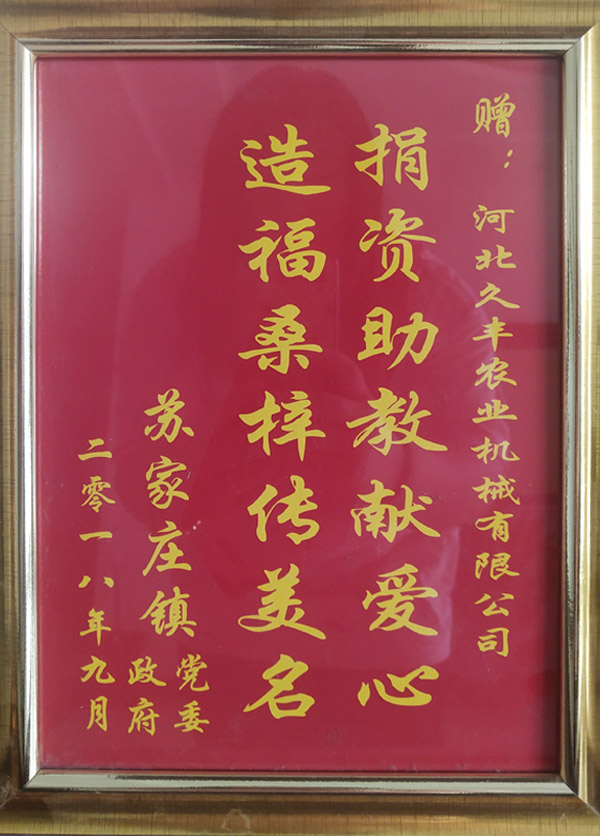 赠：河北久丰农业机械有限公司
捐资助教献爱心
造福桑梓传美名
苏家庄镇
党委
政府
二零一八年九月